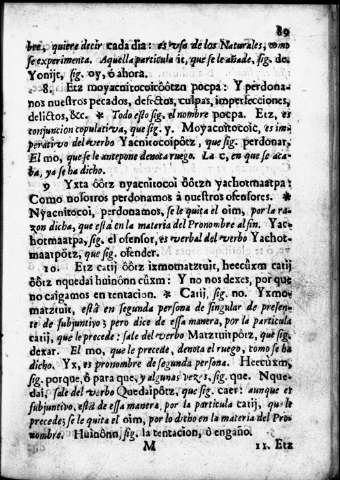 89
bre, quiere decir cada dia: es uso de los Naturales, como
se experimenta. Aquella particula ìt, que se le añade, sig. de
Yonijt, sig. oy, ò ahora.
8. Etz moyacnitocoicôôtzn pocpa: Y perdona-
nos nuestros pecados, defectos, culpas, imperfecciones,
delictos, &c. * Todo esto sig. el nombre pocpa. Etz, es
conjuncion copulativa, que sig. y. Moyacnitocoìc, es im-
perativo del verbo Yacnitocoipôtz, que sig. perdonar.
El mo, que se le antepone denota ruego. La c, en que se aca-
ba, ya se ha dicho.
9 Yxta ôôtz nyacnitocoì ôôtzn yachotmaatpa:
Como nosotros perdonamos à nuestros ofensores. *
Nyacnitocoì, perdonamos, se le quita el oìm, por la ra-
zon dicha, que està en la materia del Pronombre al fin. Yac-
hotmaatpa, sig. el ofensor, es verbal del verbo Yachot-
maatpôtz, que sig. ofender.
10. Etz catìj ôôtz ixmomatztuit, heecûxm catìj
ôôtz nquedai huinônn cûxm: Y no nos dexes, por que
no caigamos en tentacion. * Catìj, sig. no. Yxmo-
matztuit, està en segunda persona de singular de presen-
te de subjuntivo; pero dice de essa manera, por la particula
catìj, que le precede: sale del verbo Matztuitpôtz, que sig.
dexar. El mo, que le precede, denota el ruego, como se ha
dicho. Yx, es pronombre de segunda persona. Heecûxm,
sig. porque, ò para que, y algunas vezes, sig. que. Nque-
dai, sale del verbo Quedaipôtz, que sig. caer: aunque es
subjuntivo, està de essa manera, por la particula catìj, que le
precede; se le quita el oìm, por lo dicho en la materia del Pro-
nombre. Huinônn, sig. la tentacion, ò engaño.
M 11. Etz